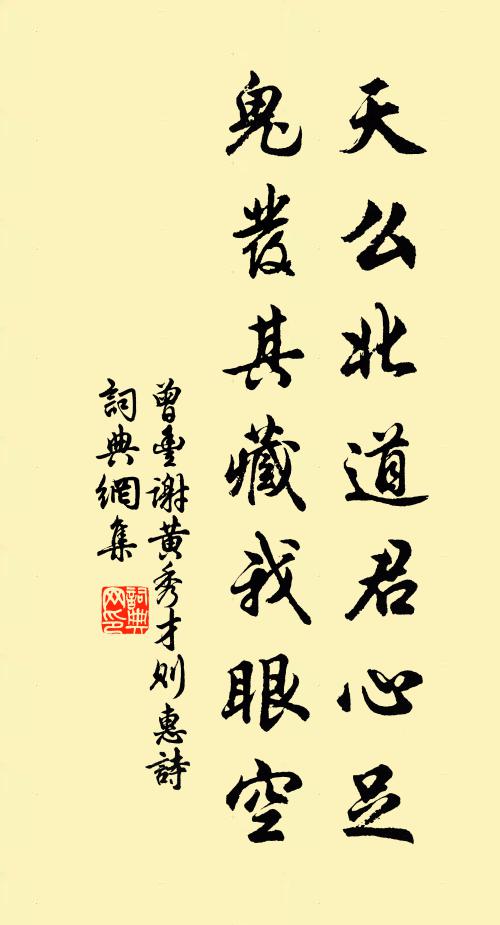 天公北道君心足
鬼發其藏我眼空
曾豐謝黃秀才則惠詩
詞典網集
詞典网印